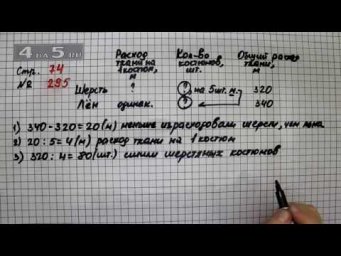 4 на 5.ru
Стр. 74
№ 295
Расход ткани на 1 костюм, м
Кол-во костюмов, шт.
Общий расход ткани, м
Шерсть ? ? на 5 шт. м. 320
Лён одинак. ? 340
1) 340-320=20(м) меньше израсходовали шерсти, чем льна
2) 20:5=4(м) расход ткани на 1 костюм
3) 320:4=80(шт.) сшили шерстяных костюмов